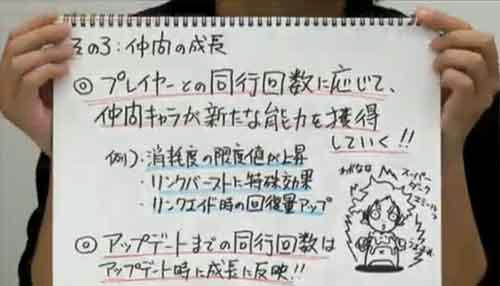 その3:仲間の成長
◎ プレイヤーとの同行回数に応じて、
仲間キャラが新たな能力を獲得
していく!!
例)・消耗度の限度値が上昇
・リンクバーストに特殊効果
・リンクエイド時の回復量アップ
スーパー
◎ アップデートまでの同行回数は
アップデート時に成長に反映!!